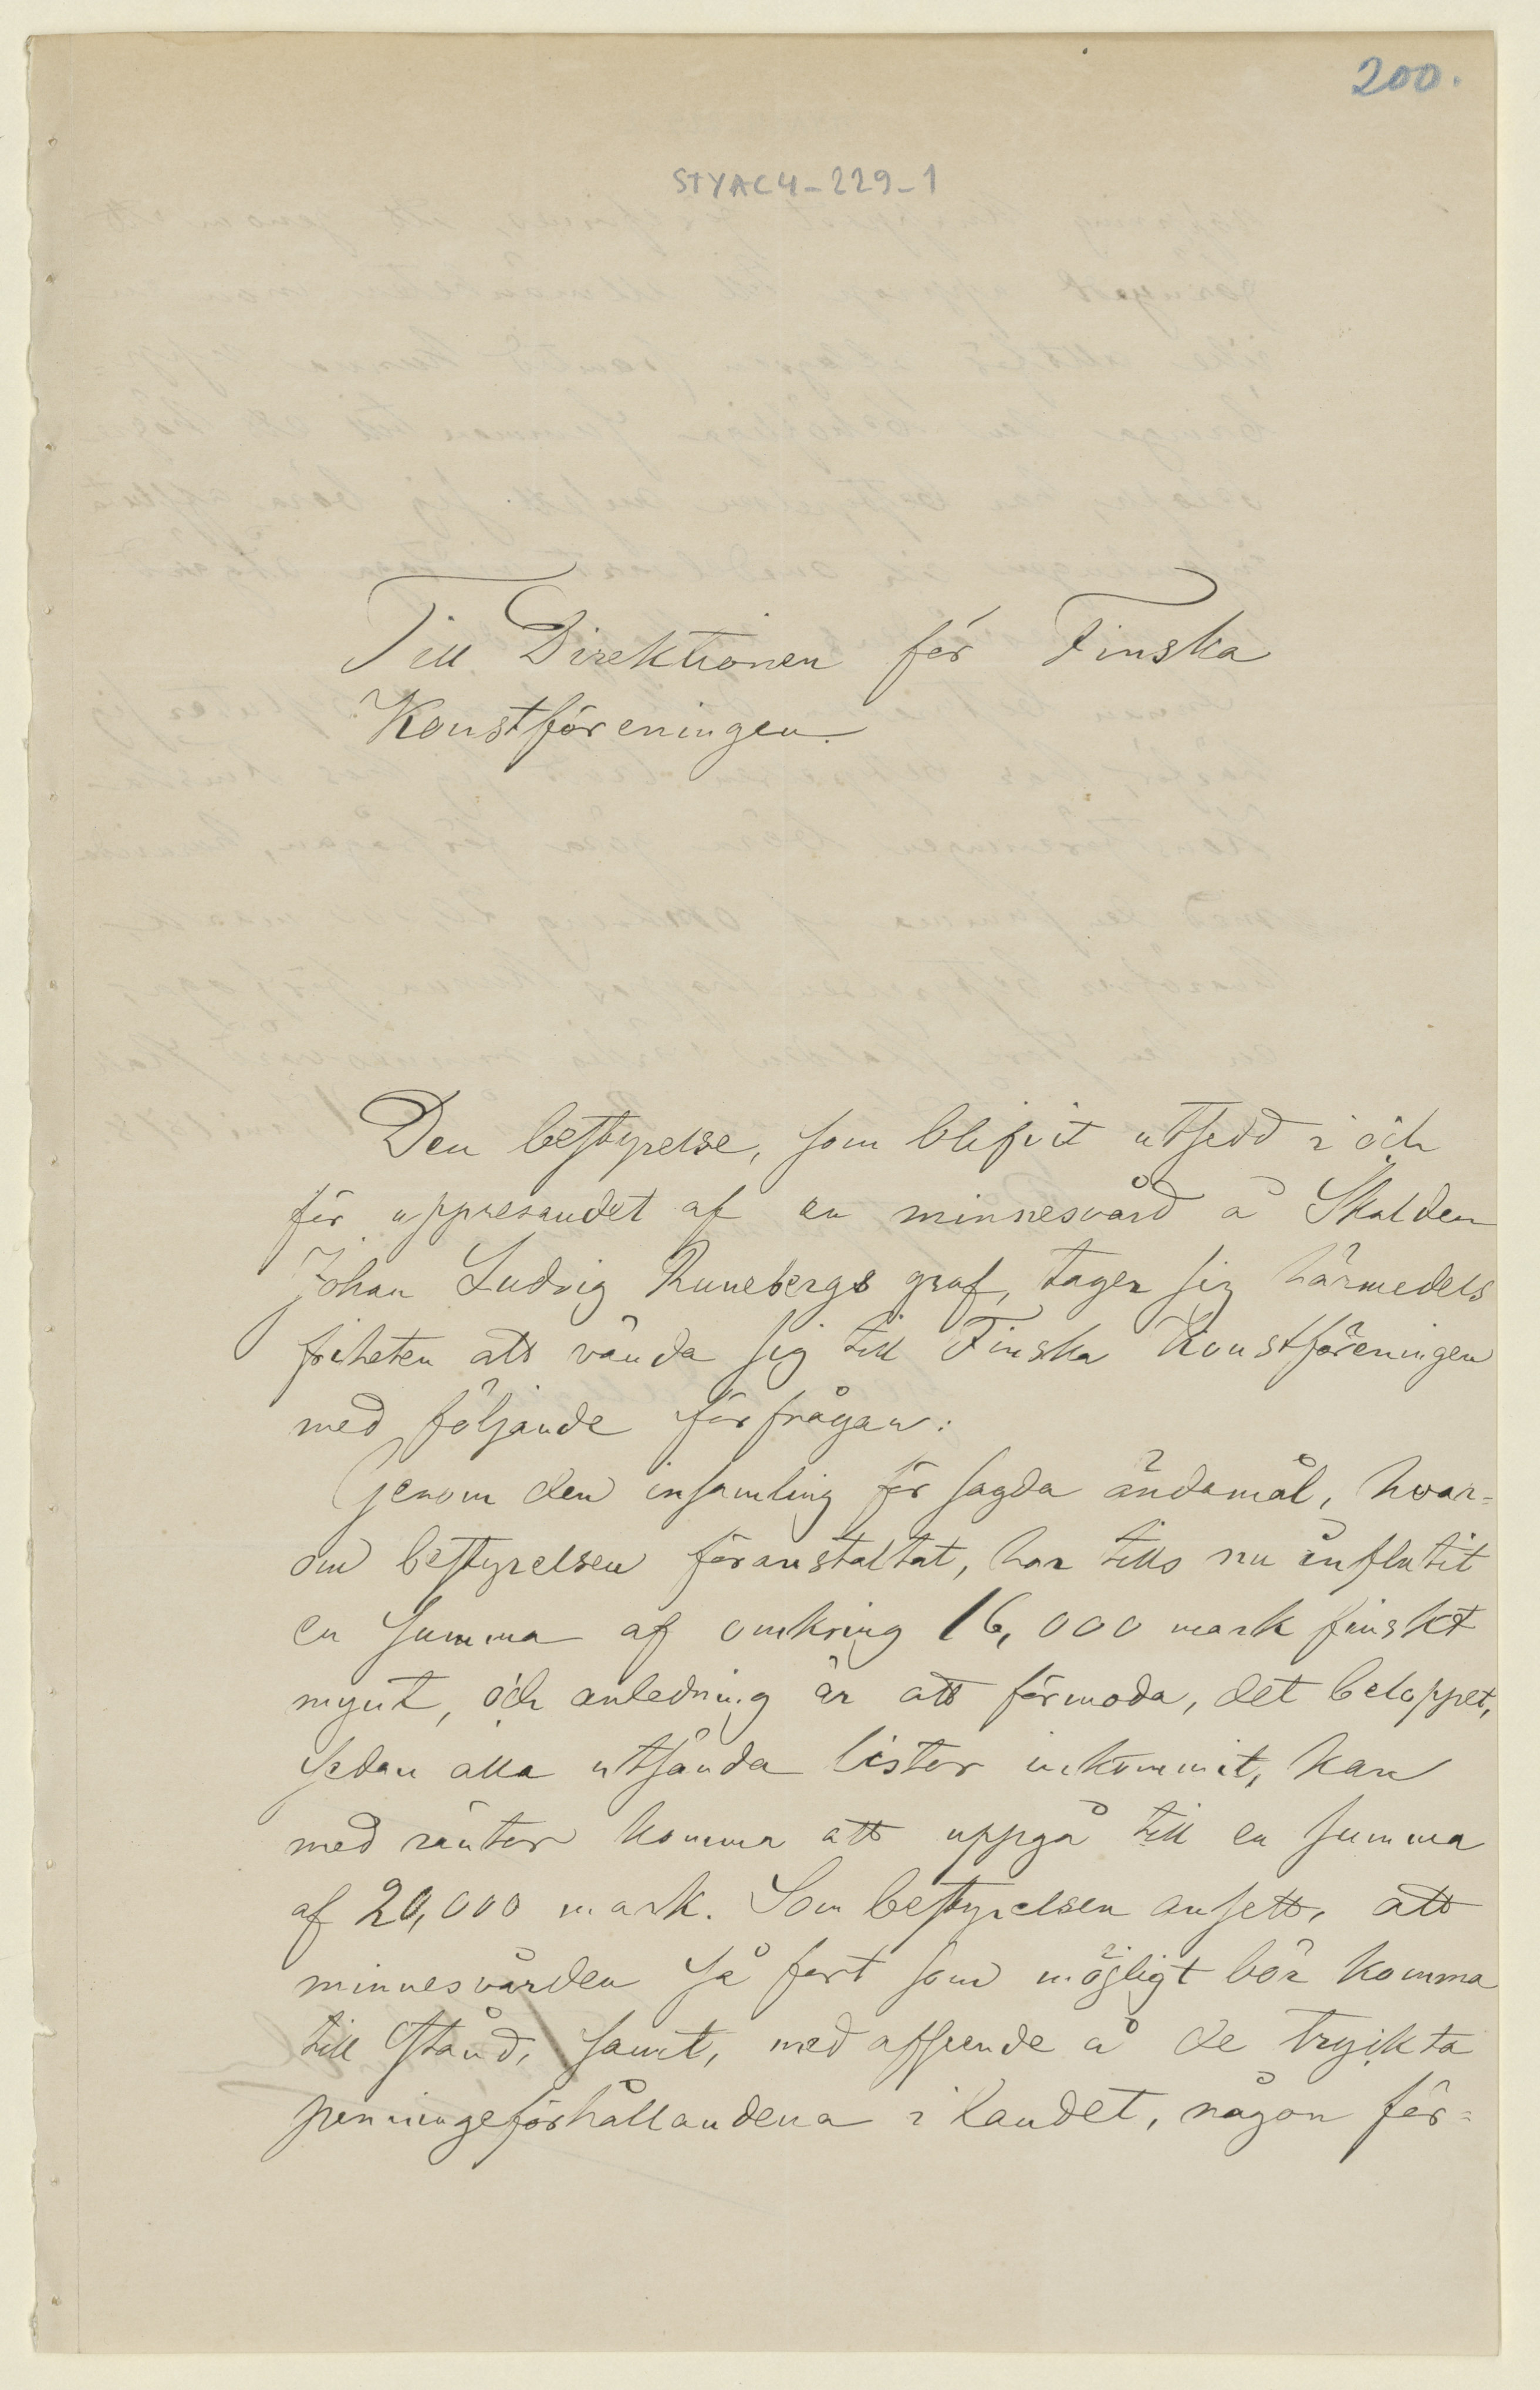 200.
STYAC4-229-1
Till Direktionen för Finska
Konstföreningen.
Den bestyrelse, som blifvit utsedd i och
för uppresandet af en minnesvård å Skalden
Johan Ludvig Runebergs graf, tager sig härmedels
friheten att vända sig till Finska Konstföreningen
med följande förfrågan:
Genom den insamling för sagda ändamål, hvar=
om bestyrelsen föranstaltat, har tills nu influtit
en summa af omkring 16,000 mark finskt
mynt, och anledning är att förmoda, det beloppet,
sedan alla utsända listor inkommit, kan
med räntor komma att uppgå till en summa
af 20,000 mark. Som bestyrelsen ansett, att
minnesvården så fort som möjligt bör komma
till stånd, samt, med afseende å de tryckta
penningeförhållandena i landet, någon för=